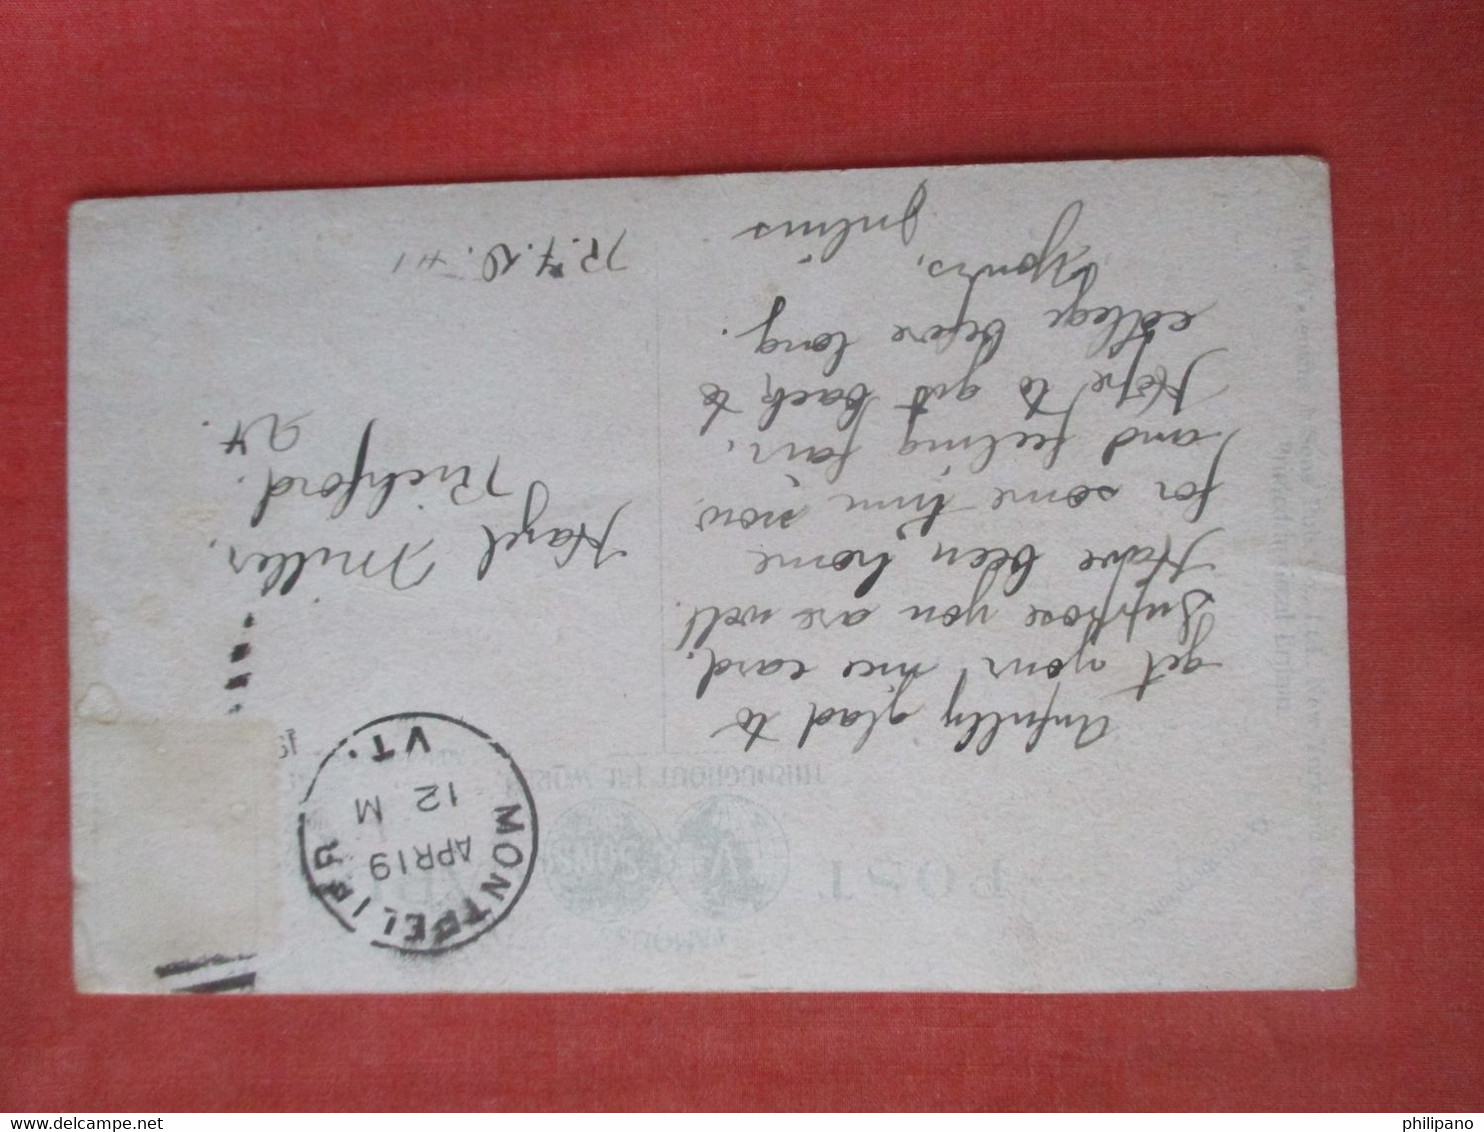 FAMOUS
POST
& SONS
THROUGHOUT THE WORLD
MONTPELIER
APR 19
12 M
VT.
Awfully glad to
get your nice card.
Suppose you are well.
Have been home
for some time now
and feeling fair.
Hope to get back to
college before long.
Yours,
Julius
Hazel Miller
Richford.
Vt.
R.F.D. #1
philipano
www.delcampe.net